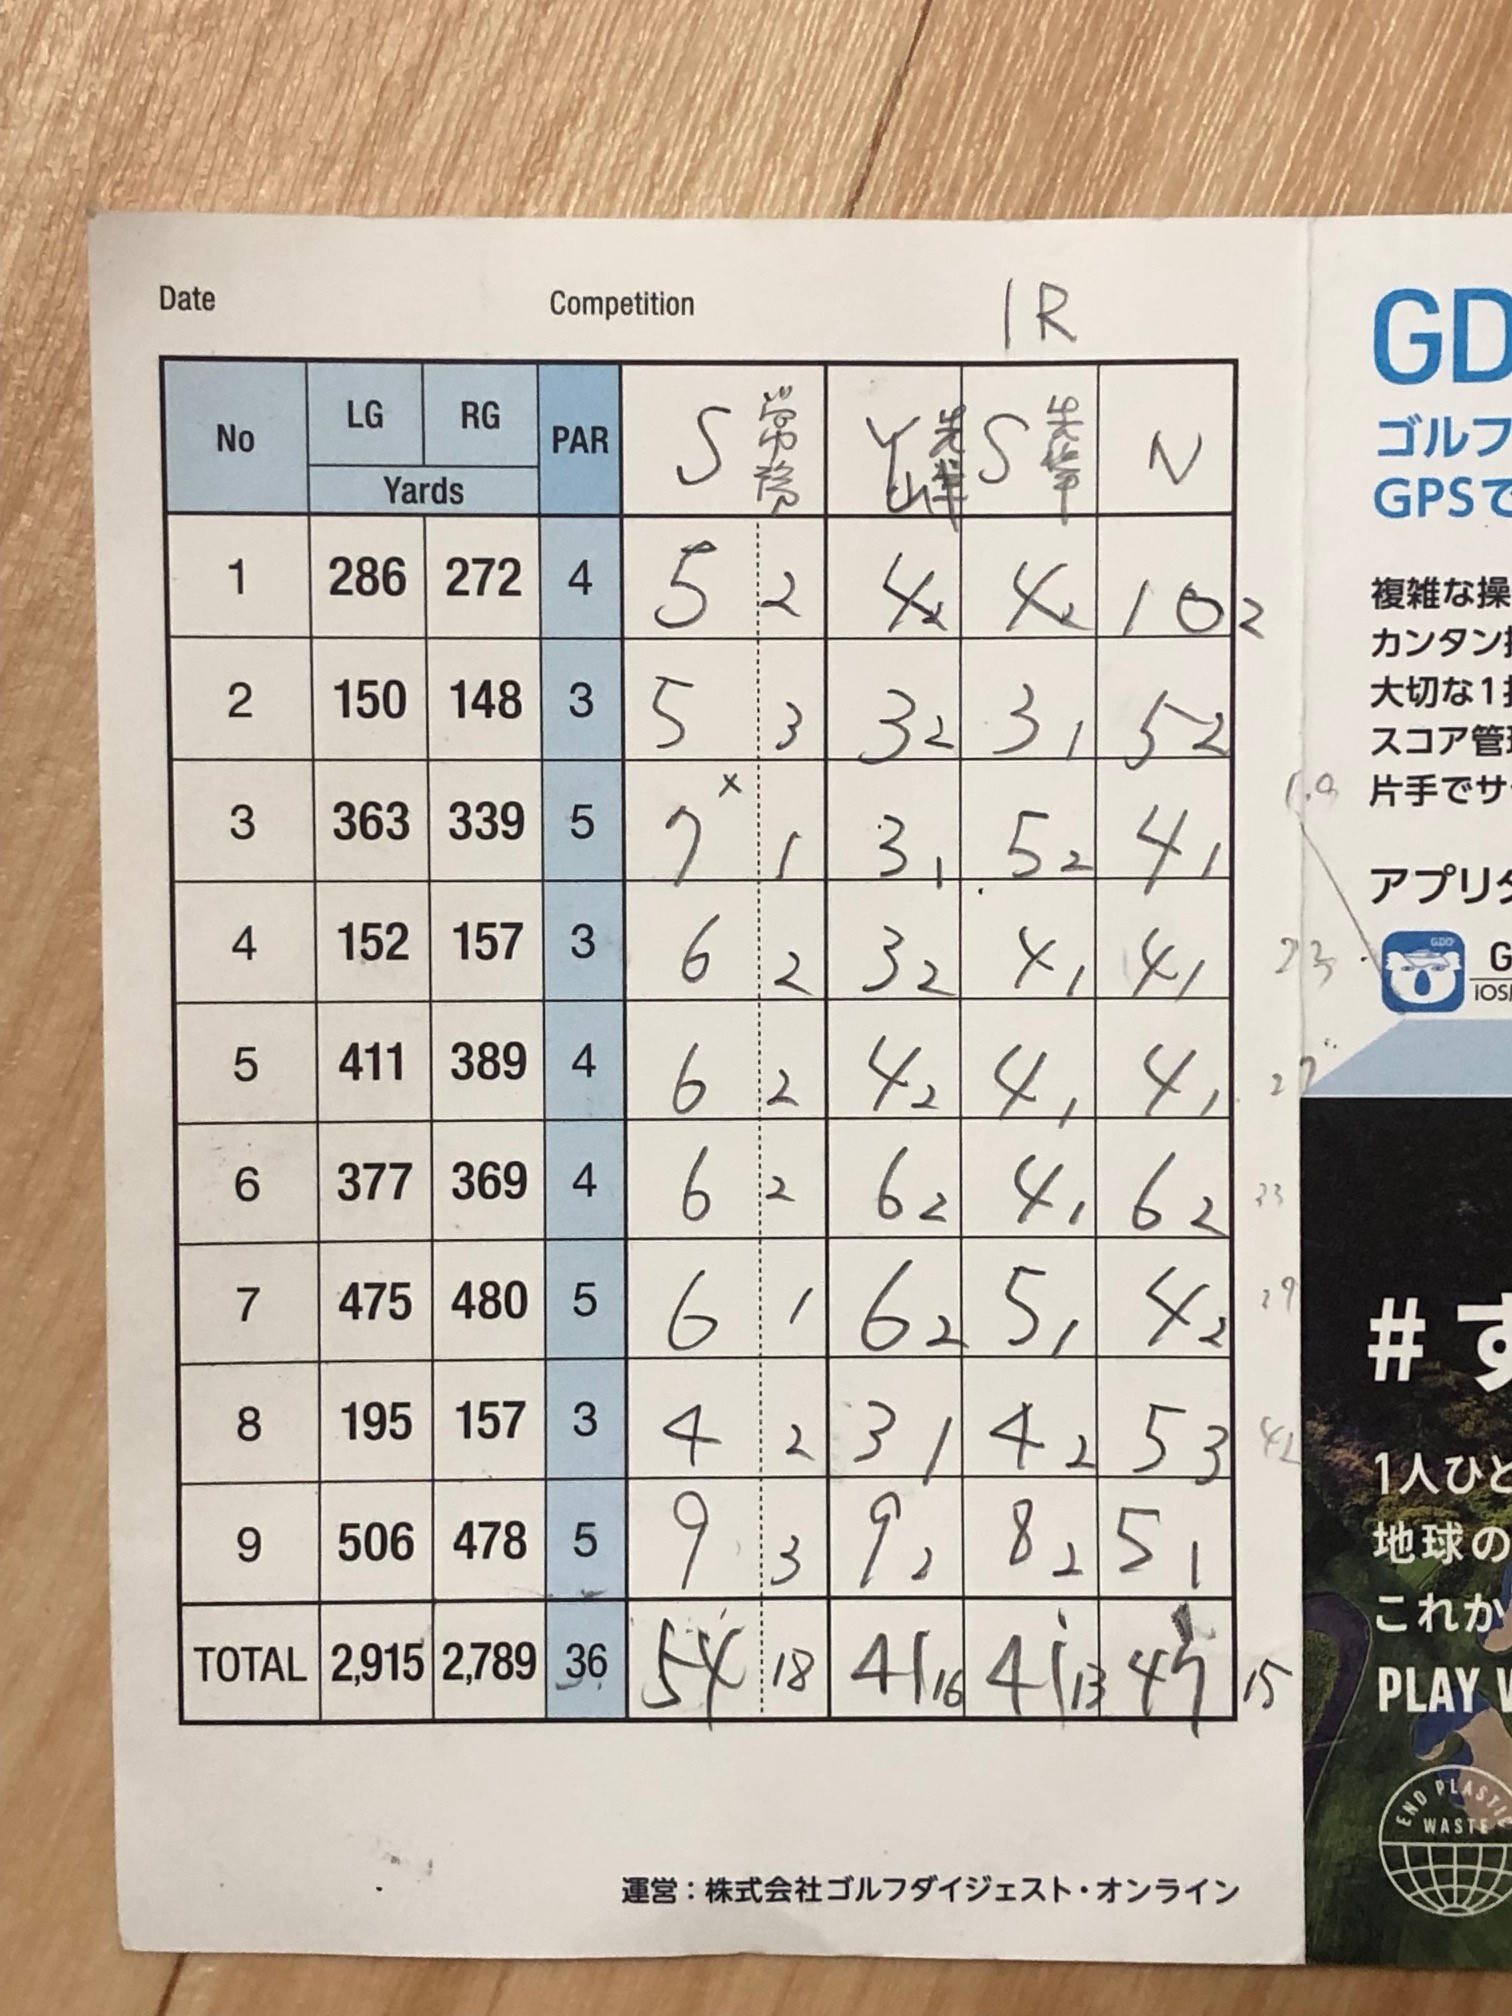 Date Competition 1R
GD
ゴルフ
GPSで
No LG RG PAR S常務 Y山先輩 S先輩 N
Yards
1 286 272 4 5 2 4 2 4 2 10 2
2 150 148 3 5 3 3 2 3 1 5 2
3 363 339 5 7 x 1 3 1 5 2 4 1
4 152 157 3 6 2 3 2 4 1 4 1
5 411 389 4 6 2 4 2 4 1 4 1
6 377 369 4 6 2 6 2 4 1 6 2
7 475 480 5 6 1 6 2 5 1 4 2
8 195 157 3 4 2 3 1 4 2 5 3
9 506 478 5 9 3 9 2 8 2 5 1
TOTAL 2,915 2,789 36 54 18 41 16 41 13 47 15
運営：株式会社ゴルフダイジェスト・オンライン
複雑な操
カンタン
大切な1
スコア管
片手でサ
アプリ
GDO
G
iOS
23
27
33
42
#す
1人ひと
地球の
これか
PLAY
END PLASTIC
WASTE